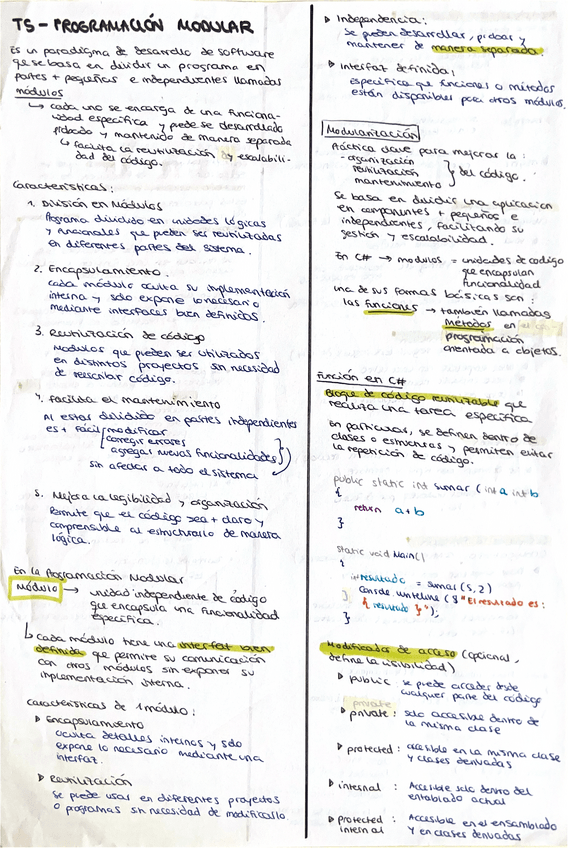 T5 - PROGRAMACIÓN MODULAR
Es un paradigma de desarrollo de software
que se basa en dividir un programa en
partes + pequeñas e independientes llamadas
módulos
↳ cada uno se encarga de una funciona-
lidad específica y puede ser desarrollado
probado y mantenido de manera separada
↳ facilita la reutilización y escalabili-
dad del código.
Características:
1. División en Módulos
Programa dividido en unidades lógicas
y funcionales que pueden ser reutilizadas
en diferentes partes del sistema.
2. Encapsulamiento.
cada módulo oculta su implementación
interna y solo expone lo necesario
mediante interfaces bien definidos.
3. Reutilización de código
Módulos que pueden ser utilizados
en distintos proyectos sin necesidad
de reescribir código.
4. Facilita el mantenimiento
Al estar dividido en partes independientes
es + fácil modificar
corregir errores
agregar nuevas funcionalidades
sin afectar a todo el sistema
5. Mejora la legibilidad y organización
Permite que el código sea + claro y
comprensible al estructurarlo de manera
lógica.
En la Programación Modular
Módulo → unidad independiente de código
que encapsula una funcionalidad
específica.
↳ cada módulo tiene una interfaz bien
definida que permite su comunicación
con otros módulos sin exponer su
implementación interna.
Características de 1 módulo:
▷ Encapsulamiento
oculta detalles internos y solo
expone lo necesario mediante una
interfaz.
▷ Reutilización
se puede usar en diferentes proyectos
o programas sin necesidad de modificarlo.
▷ Independencia:
se pueden desarrollar, probar y
mantener de manera separada.
▷ Interfaz definida:
especifica que funciones o métodos
están disponibles para otros módulos.
Modularización
Práctica clave para mejorar la:
- organización
reutilización
mantenimiento
del código.
Se basa en dividir una aplicación
en componentes + pequeños e
independientes, facilitando su
gestión y escalabilidad.
En C# → modulos = unidades de código
que encapsulan
funcionalidad
una de sus formas básicas son:
las funciones → también llamadas
Métodos en
programación
orientada a objetos.
Función en C#
Bloque de código reutilizable que
realiza una tarea específica
En particular, se definen dentro de
clases o estructuras y permiten evitar
la repetición de código.
public static int sumar (int a int b
{
return a+b
}
static void Main()
{
int resultado = sumar (5,2)
Console.writeline ($"El resultado es:
{ resultado }");
}
Modificador de acceso (opcional,
define la visibilidad)
▷ public : se puede acceder desde
cualquier parte del código
private
▷ private : solo accesible dentro de
la misma clase
▷ protected: accesible en la misma clase
y clases derivadas
▷ internal : Accesible solo dentro del
ensamblado actual
▷ protected : Accesible en el ensamblado
internal y en clases derivadas